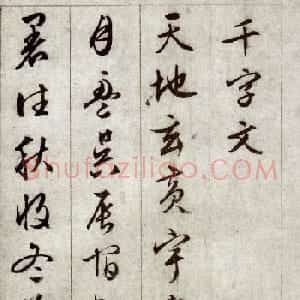 千字文
天地玄黄宇
月盈昃辰宿
暑往秋收冬
shufaziliao.com